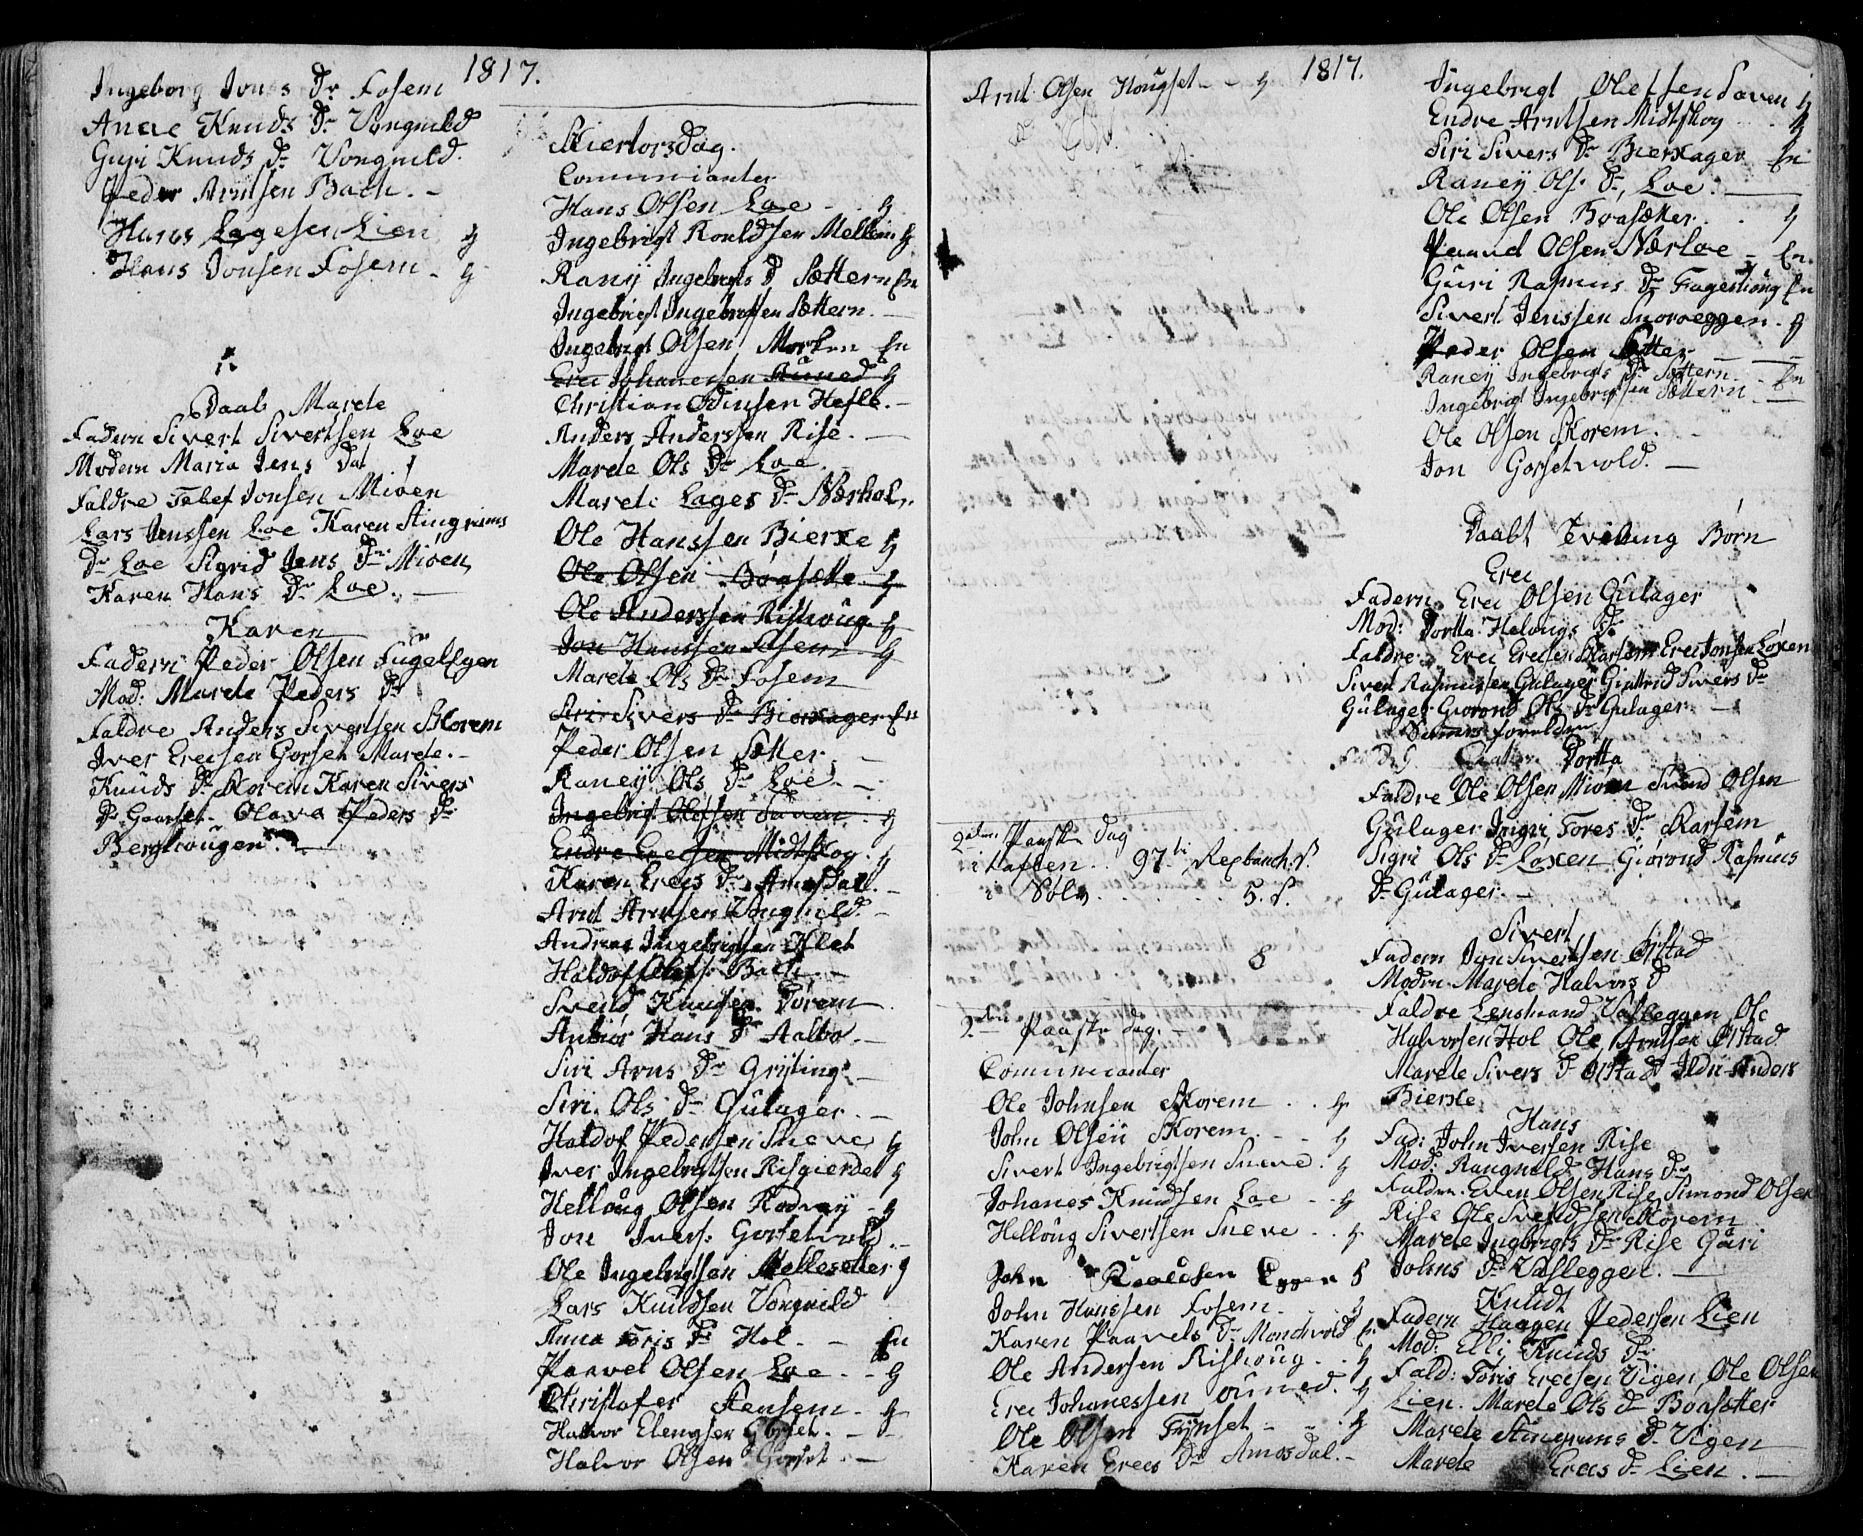 1817.
Ingeborg Jons Dr Fosem
Anne Knuds Dr Vongnild
Guri Knuds Dr Vongnild.
Peder Arntsen Bach. -
Hans Lagesen Lien
Hans Jonsen Fosem -
Daab Marete
Fadern Sivert Sivertsen Loe
Modern Maria Jens Dat
Faldre Jonsen Mioen
Lars Jenssen Loe Karen Stingrims
Dr Loe Sigrid Jens Dr Mioen,
Karen Hans Dr Loe. -
Karen
Fadern Peder Olsen
Mod: Marete Peders Dr
Faldre Anders Sivertsen Skorem
Iver Erecsen Gorset Marete. -
Knuds Dr Skorem Karen Sivers
Dr Gorset - Olava Peders Dr
Berghougen. -
Skiertorsdag.
Communianter
Hans Olsen Loe -
Ingebrigt Rouldsen Mellem
Ranij Ingebrigts D Sættern En
Ingebrigt Ingebrigtsen Sættern. -
Ingebrigt Olsen Morken En
Erec Johanessen Auned
Christian Odinsen Hefle. -
Anders Anderssen Rise. -
Marete Ols Dr Loe. -
Marete Lages Dr Nærloe.
Ole Hanssen Bierke
Ole Olsen Boasætte
Ole Anderssen Rishoug
Jon Hanssen Fosem
Marete Ols Dr Fosem
Siri Sivers Dr Bierkager En
Peder Olsen Sætter. -
Raneij Ols Dr Loe. -
Ingebrigt Olefsen Saven
Endre Midtskog
Karen Erecs Dr Amosdal. -
Arnt Arntsen Vongnild. -
Andreas Ingebrigtsen Klet
Haldof Olefs: Bach. -
Svend Knudsen Sorem
Anbior Hans Dr Aalbo. -
Siri Arns Dr Grijting. -
Siri Ols Dr Gulager. -
Haldof Pedersen Sneve
Iver Ingebrigtsen Risgierdet
Helloug Olsen Rodvey -
Jon Ivers: Gorsetvold. -
Ole Ingebrigtsen Mellesætter
Lars Knudsen Vongnild
Anna Toris Dr Hol. - En
Paavel Olsen Loe. -
Christofer Stensem -
Halvor Elengsen Gorset. -
Halvor Olsen Gorset. -
1817.
Arnt Olsen Hougset - -
2den Paaske Dag
i Taflen . . 97 ti Rexbanch. S
i Sølv . . . . . 5. S.
8
2den Paaske Dag. -
Communicanter
Ole Johnsen Skorem . .
John Olsen Skorem. - -
Sivert Ingebrigtsen Sneve.
Johanes Knudsen Loe - -
Helloug Sivertsen Sneve . .
John Rooldsen Eggen
John Hanssen Fosem. . .
Karen Paavels Dr Monchvold En
Ole Andersen Rishoug. . .
Erec Johanessen Ouned.
Ole Olsen Fijnset - -
Karen Erecs Dr Amosdal. -
Ingebrigt Olefsen Saven
Endre Arntsen Midtskog . .
Siri Sivers Dr Bierkager En
Raneij Ols. Dr Loe. -
Ole Olsen Boasætter. .
Paavel Olsen Nærloe - En.
Guri Rasmus Dr Fagerhoug En
Sivert Jenssen Snoroeggen.
Peder Olsen Sætter - -
Raneij Ingebrigts Dr Sættern - En
Ingebrigt Ingebrigtsen Sættern. -
Ole Olsen Skorem. -
Jon Gorsetvold. -
Daabt Tvilling Børn
Erec
Fadern. Erec Olsen Gulager
Mod: Dortta Helougs Dr
Faldre. Erec Erecsen Karsem Erec Jonsen Loxen
Siver Rasmussen Gulager Giertrud Sivers Dr
Gulager Giorond Ols Dr Gulager. -
Samme Foreldre
Dortta
Faldre Ole Olsen Mioen Svend Olsen
Gulager Ingri Tores Dr Karsem
Sigri Ols Dr Loxen Giorond Rasmus
Dr Gulager. -
Sivert
Fadern Jon Sivertsen Ørstad
Modern Marete Halvors D
Faldre Lensmand Vasleggen Ole
Halvorsen Hol Ole Arntsen Ørstad
Marete Sivers D Ørstad Ildri Anders
Bierke
Hans
Fad: John Iversen Rise
Mod: Rangnild Hans Dr
Faldre. Even Olsen Rise Simond Olsen
Rise Ole Svendsen Skorem
Marete Ingebrigts Dr Rise Guri
Johns Dr Vasleggen. -
Knudt
Fadern Haagen Pedersen Lien
Mod: Elli Knuds Dr
Fald: Toris Erecsen Vigen, Ole Olsen
Lien. Marete Ols Dr Boasætter
Marete Stingrims D. Vigen
Marete Erecs Dr Lien. -